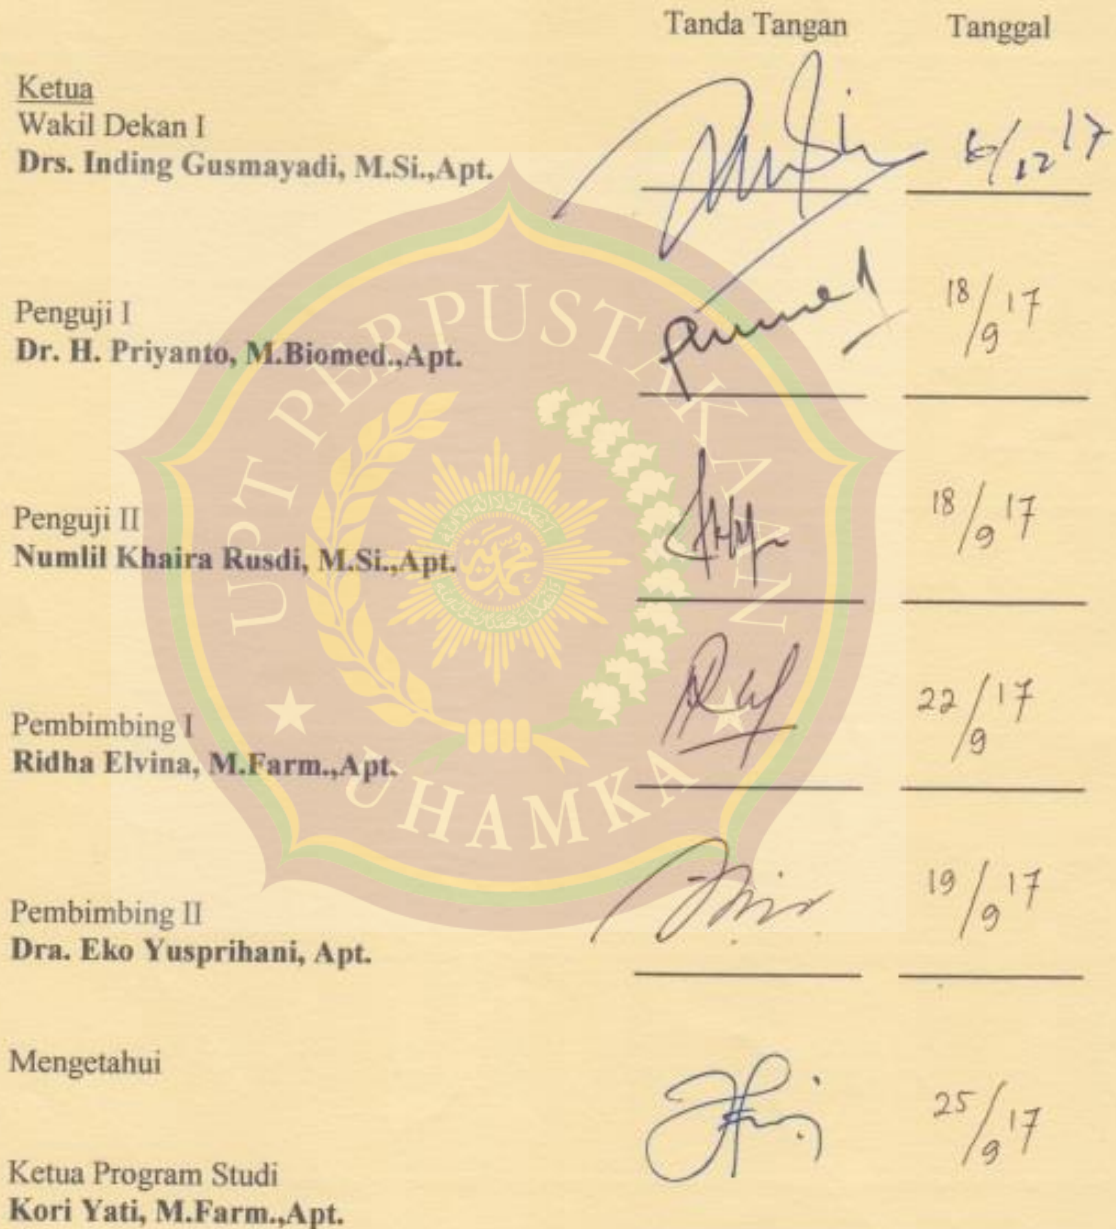 Tanda Tangan Tanggal
Ketua
Wakil Dekan I
Drs. Inding Gusmayadi, M.Si.,Apt.
/12 17
Penguji I
Dr. H. Priyanto, M.Biomed.,Apt.
18/9 17
Penguji II
Numlil Khaira Rusdi, M.Si.,Apt.
18/9 17
Pembimbing I
Ridha Elvina, M.Farm.,Apt.
22/9 17
Pembimbing II
Dra. Eko Yusprihani, Apt.
19/9 17
Mengetahui
25/9 17
Ketua Program Studi
Kori Yati, M.Farm.,Apt.
UPT PERPUSTAKAAN
UHAMKA